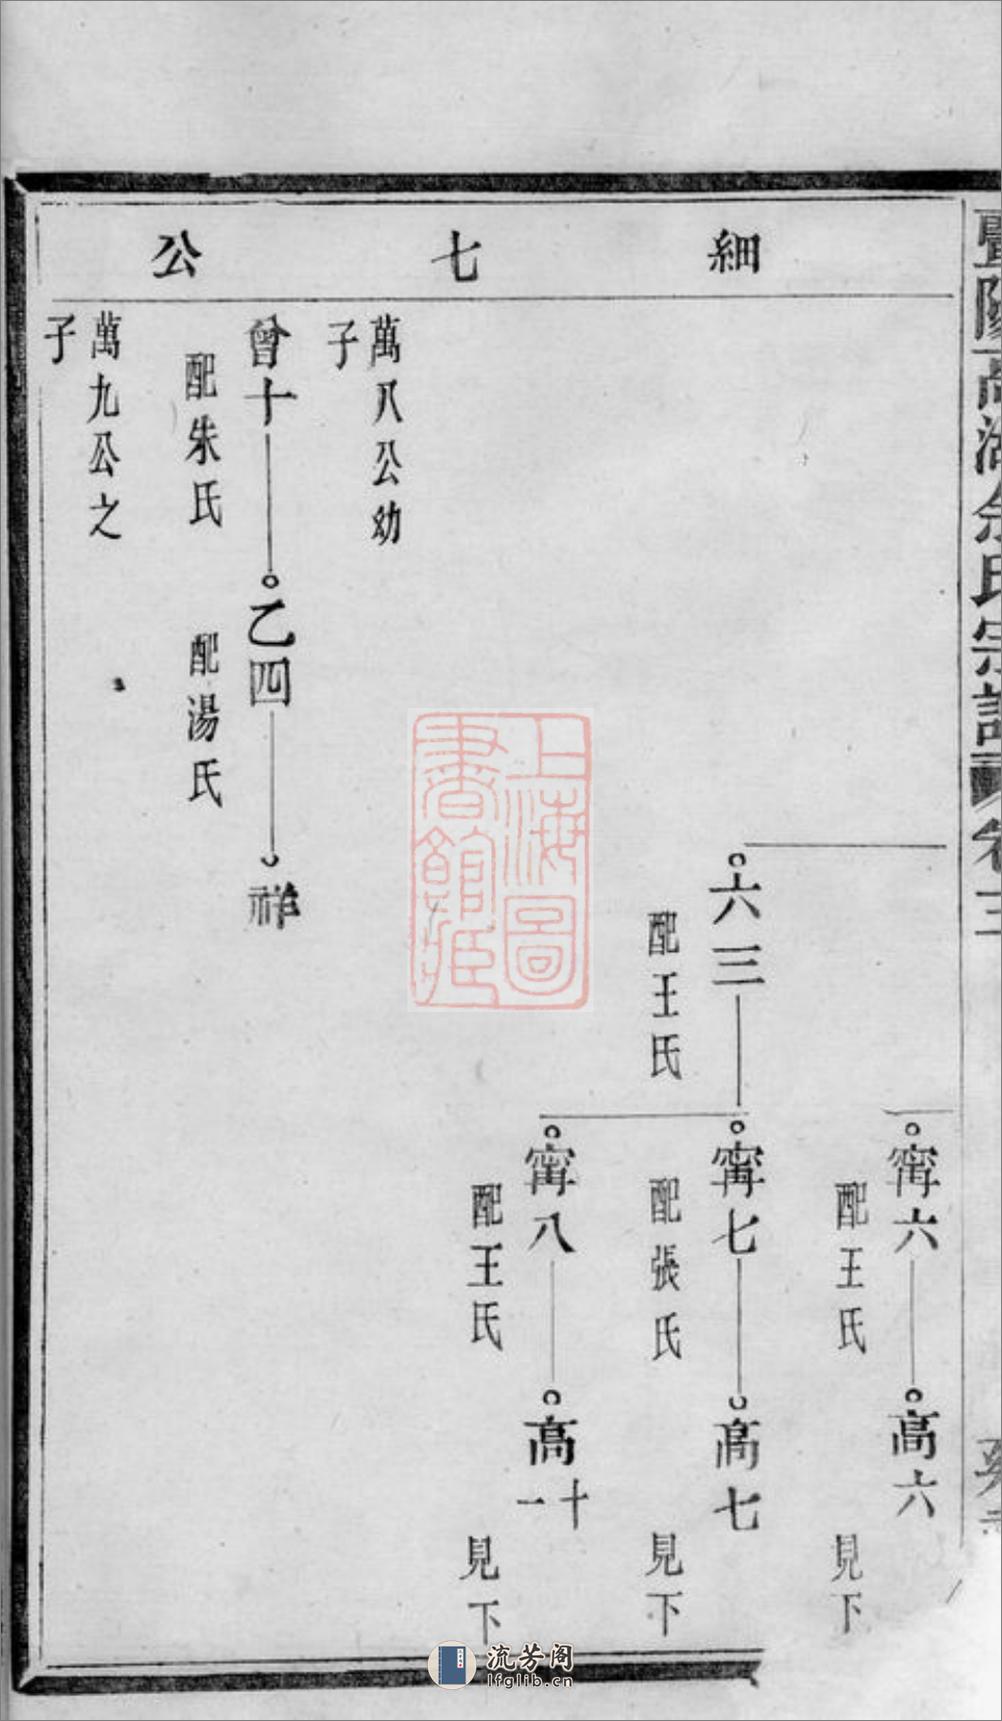 暨陽高湖余氏宗譜
卷十三
細七公
寗六
配王氏
高六
見下
六三
配王氏
寗七
配張氏
高七
見下
寗八
配王氏
高十一
見下
萬八公幼
子
曾十
配朱氏
乙四
配湯氏
祥
萬九公之
子
上海圖
書館藏
流芳阁
lfglib.cn